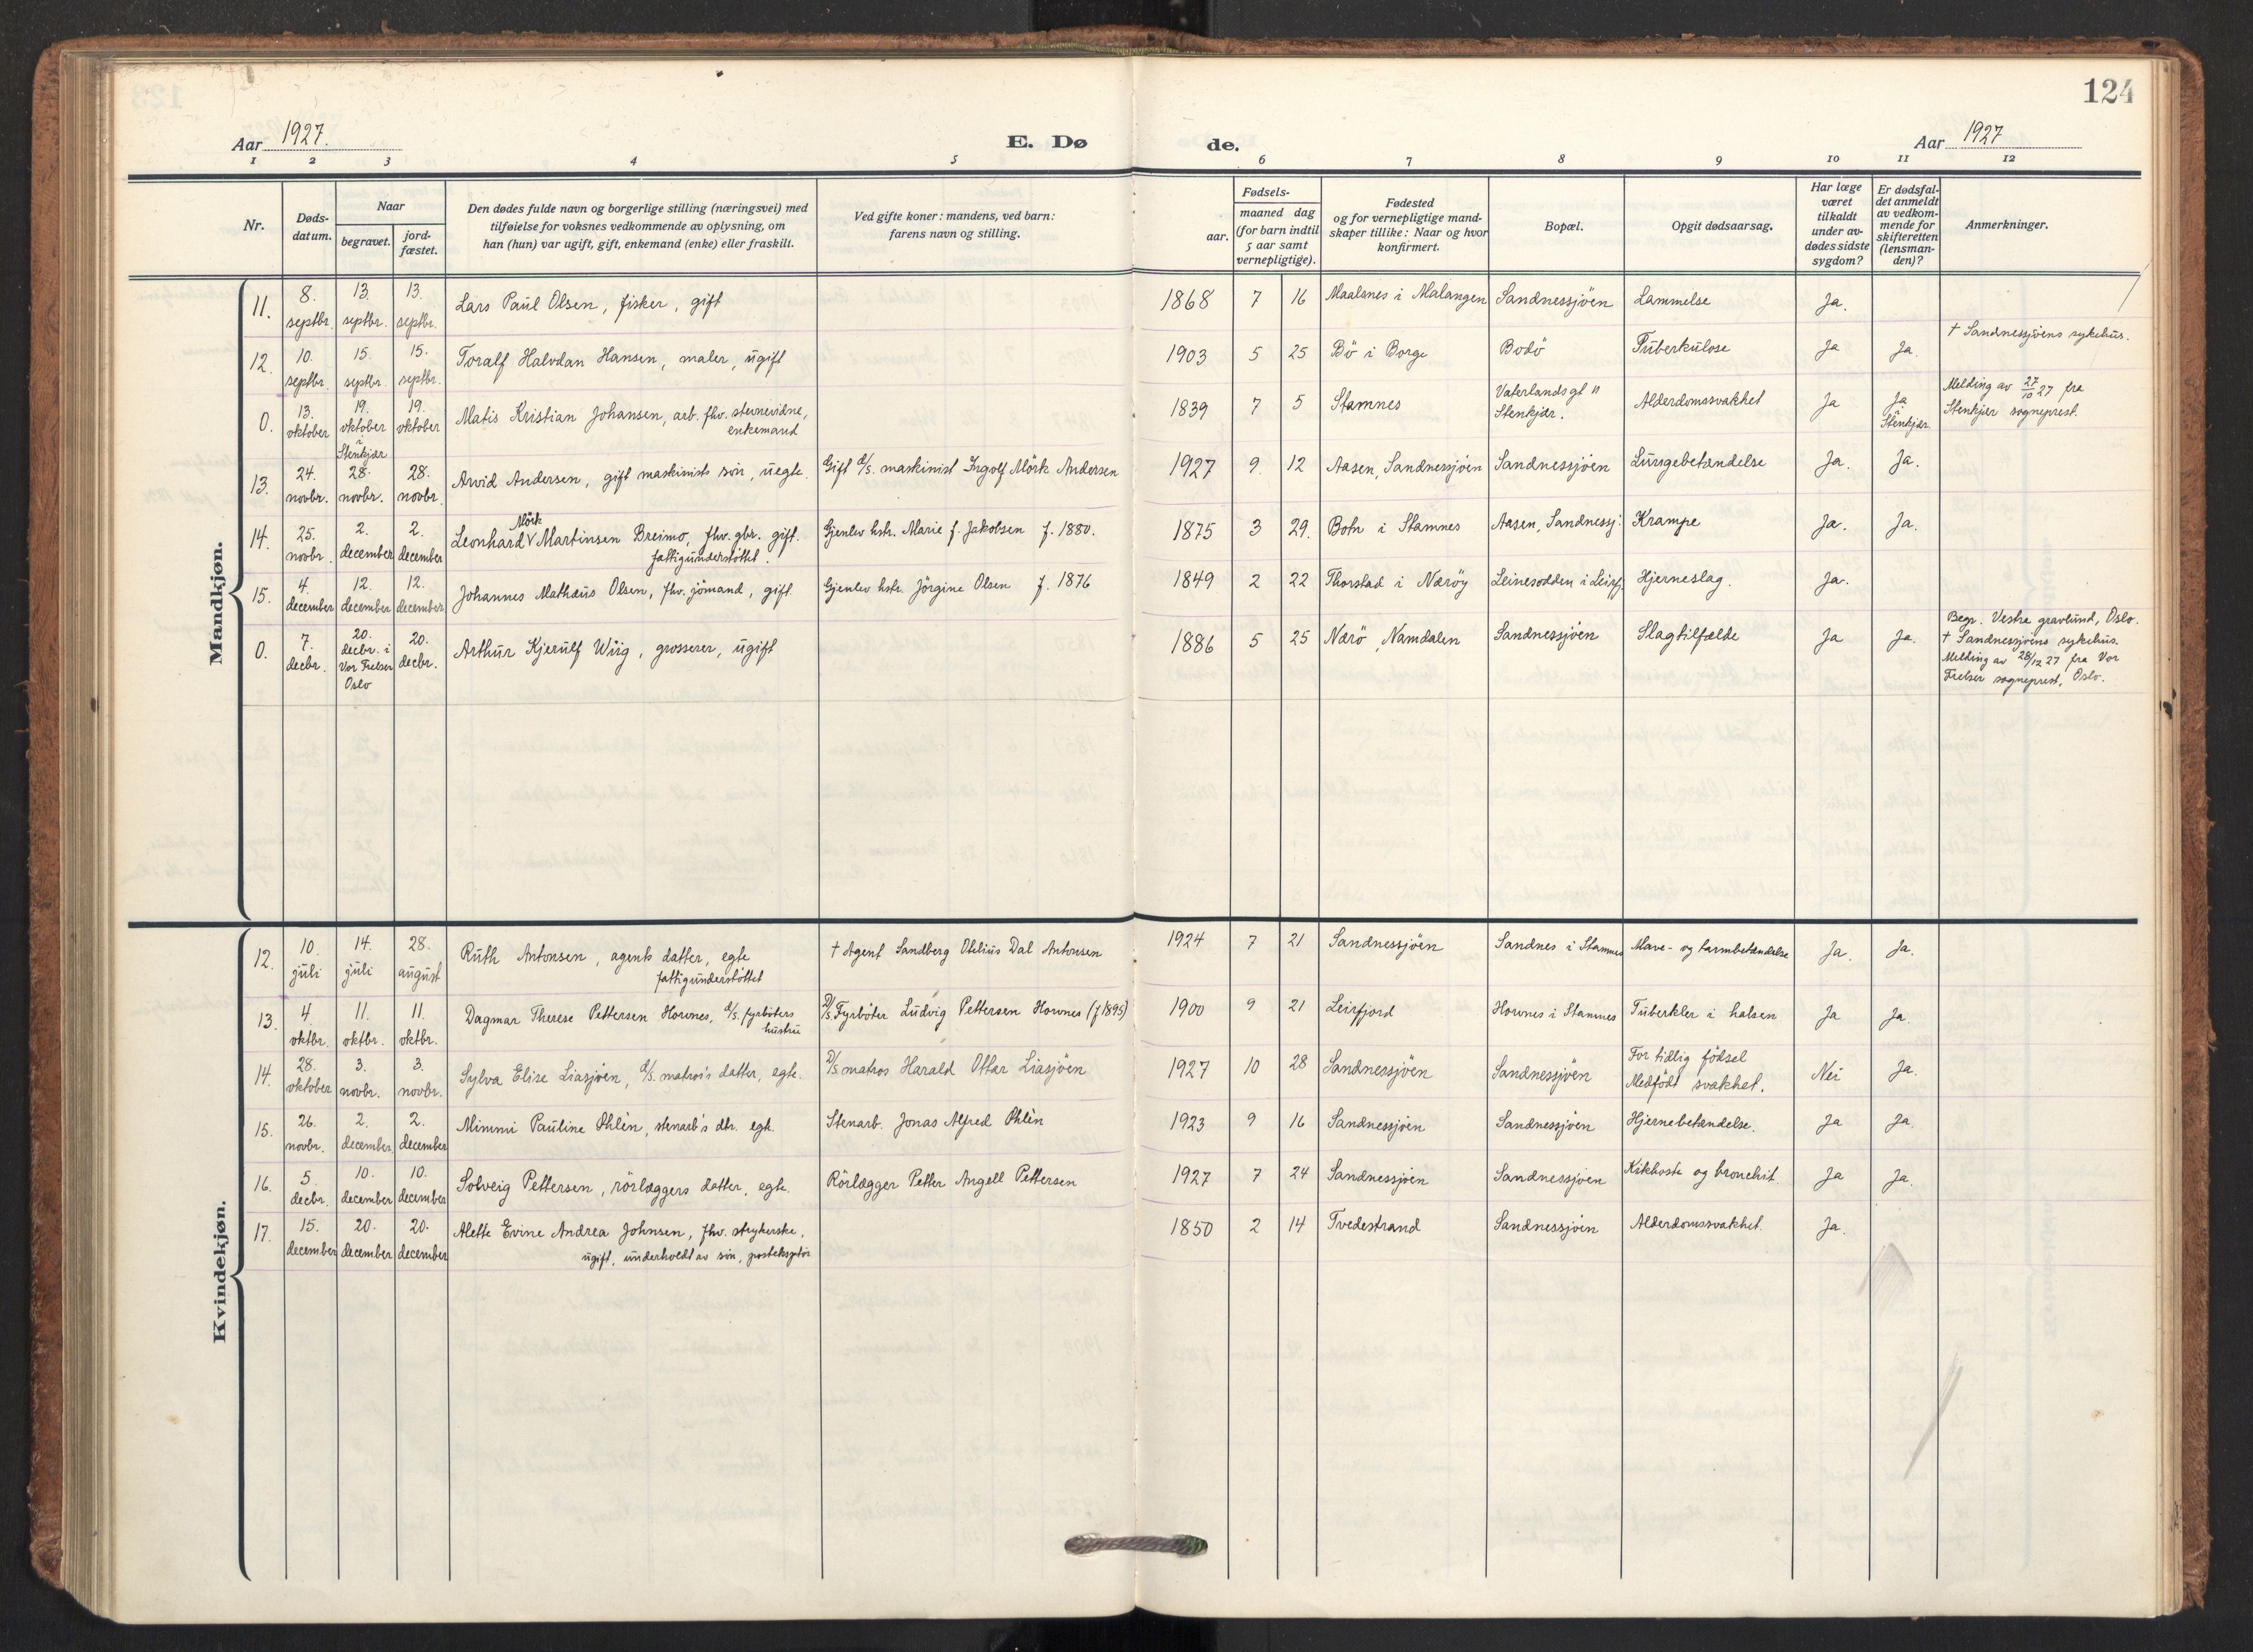 124
Aar 1927.
E. Dø de.
Aar 1927
1 2 3 4 5 6 7 8 9 10 11 12
Nr.
Døds-
datum.
Naar
begravet.
jord-
fæstet.
Den dødes fulde navn og borgerlige stilling (næringsvei) med
tilføielse for voksnes vedkommende av oplysning, om
han (hun) var ugift, gift, enkemand (enke) eller fraskilt.
Ved gifte koner: mandens, ved barn:
farens navn og stilling.
Fødsels-
aar.
maaned dag
(for barn indtil
5 aar samt
vernepligtige).
Fødested
og for vernepligtige mand-
skaper tillike: Naar og hvor
konfirmert.
Bopæl.
Opgit dødsaarsag.
Har læge
været
tilkaldt
under av-
dødes sidste
sygdom?
Er dødsfal-
det anmeldt
av vedkom-
mende for
skifteretten
(lensman-
den)?
Anmerkninger.
Mandkjøn.
11. 8. septbr. 13. septbr. 13. septbr. Lars Paul Olsen, fisker, gift 1868 7 16 Maalsnes i Malangen Sandnessjöen Lammelse Ja.
12. 10. septbr. 15. septbr. 15. septbr. Toralf Halvdan Hansen, maler, ugift 1903 5 25 Bö i Borge Bodö Tuberkulose Ja Ja. † Sandnessjöens sykehus.
0. 13. oktober 19. oktober i Stenkjær 19. oktober Matis Kristian Johansen, arb. fhv. stevnevidne,
enkemand 1839 7 5 Stamnes Vaterlandsgt 11
Stenkjær. Alderdomssvakhet Ja Ja i Stenkjær Melding av 27/10 27 fra
Stenkjær sogneprest.
13. 24. novbr. 28. novbr. 28. novbr Arvid Andersen, gift maskinists sön, uegte. Gift d/s. maskinist Ingolf Mörk Andersen 1927 9. 12 Aasen, Sandnessjöen Sandnessjöen Lungebetændelse Ja. Ja.
14. 25. novbr. 2. december 2. december Mörk
Leonhard v Martinsen Breimo, fhv. gbr. gift.
fattigunderstöttet. Gjenlev hstr. Marie f. Jakobsen f. 1880. 1875 3 29. Botn i Stamnes Aasen, Sandnessj. Krampe Ja. Ja.
15. 4. december 12. december 12. december Johannes Mathæus Olsen, fhv. jömand, gift. Gjenlev hstr. Jörgine Olsen f. 1876 1849 2 22 Thorstad i Næröy Leinesodden i Leirfj. Hjerneslag. Ja.
0. 7. decbr. 20. decbr. i Vor Frelser Oslo 20. decbr. Arthur Kjerulf Wiig, grosserer, ugift 1886 5 25 Nærö, Namdalen Sandnessjöen Slagtilfælde Ja Ja. Begr. Vestre gravlund, Oslo.
† Sandnessjöens sykehus.
Melding av 28/12 27 fra Vor
Frelser sogneprest, Oslo.
Kvindekjøn.
12. 10. juli 14. juli 28. august Ruth Antonsen, agents datter, egte
fattigunderstöttet † Agent Sandberg Otelius Dal Antonsen 1924 7 21 Sandnessjöen Sandnes i Stamnes Mave- og tarmbetændelse Ja. Ja.
13. 4. oktbr. 11. oktbr. 11. oktbr. Dagmar Therese Pettersen Hovnes, d/s. fyrböters
hustru D/s. Fyrböter Ludvig Pettersen Hovnes (f 1895) 1900 9 21 Leirfjord Hovnes i Stamnes Tuberkler i halsen Ja Ja.
14. 28. oktober 3. novbr. 3. novbr. Sylva Elise Liasjöen, d/s. matros's datter, egte. D/s matros Harald Ottar Liasjöen 1927 10 28 Sandnessjöen Sandnessjöen For tidlig födsel
Medfödt svakhet. Nei Ja.
15. 26. novbr. 2. december 2. december Mimmi Pauline Ohlin, stenarb's dtr. egte. Stenarb. Jonas Alfred Ohlin 1923 9 16 Sandnessjöen Sandnessjöen Hjernebetændelse. Ja Ja.
16. 5. decbr. 10. december 10. december Solveig Pettersen, rörlæggers datter, egte. Rörlægger Petter Angell Pettersen 1927 7 24 Sandnessjöen Sandnessjöen Kikhoste og bronchit. Ja Ja.
17. 15. december 20. december 20. december Alette Evine Andrea Johnsen, fhv. strykerske,
ugift, underholdt av sön, posteksptör 1850 2 14 Tvedestrand Sandnessjöen Alderdomssvakhet. Ja.